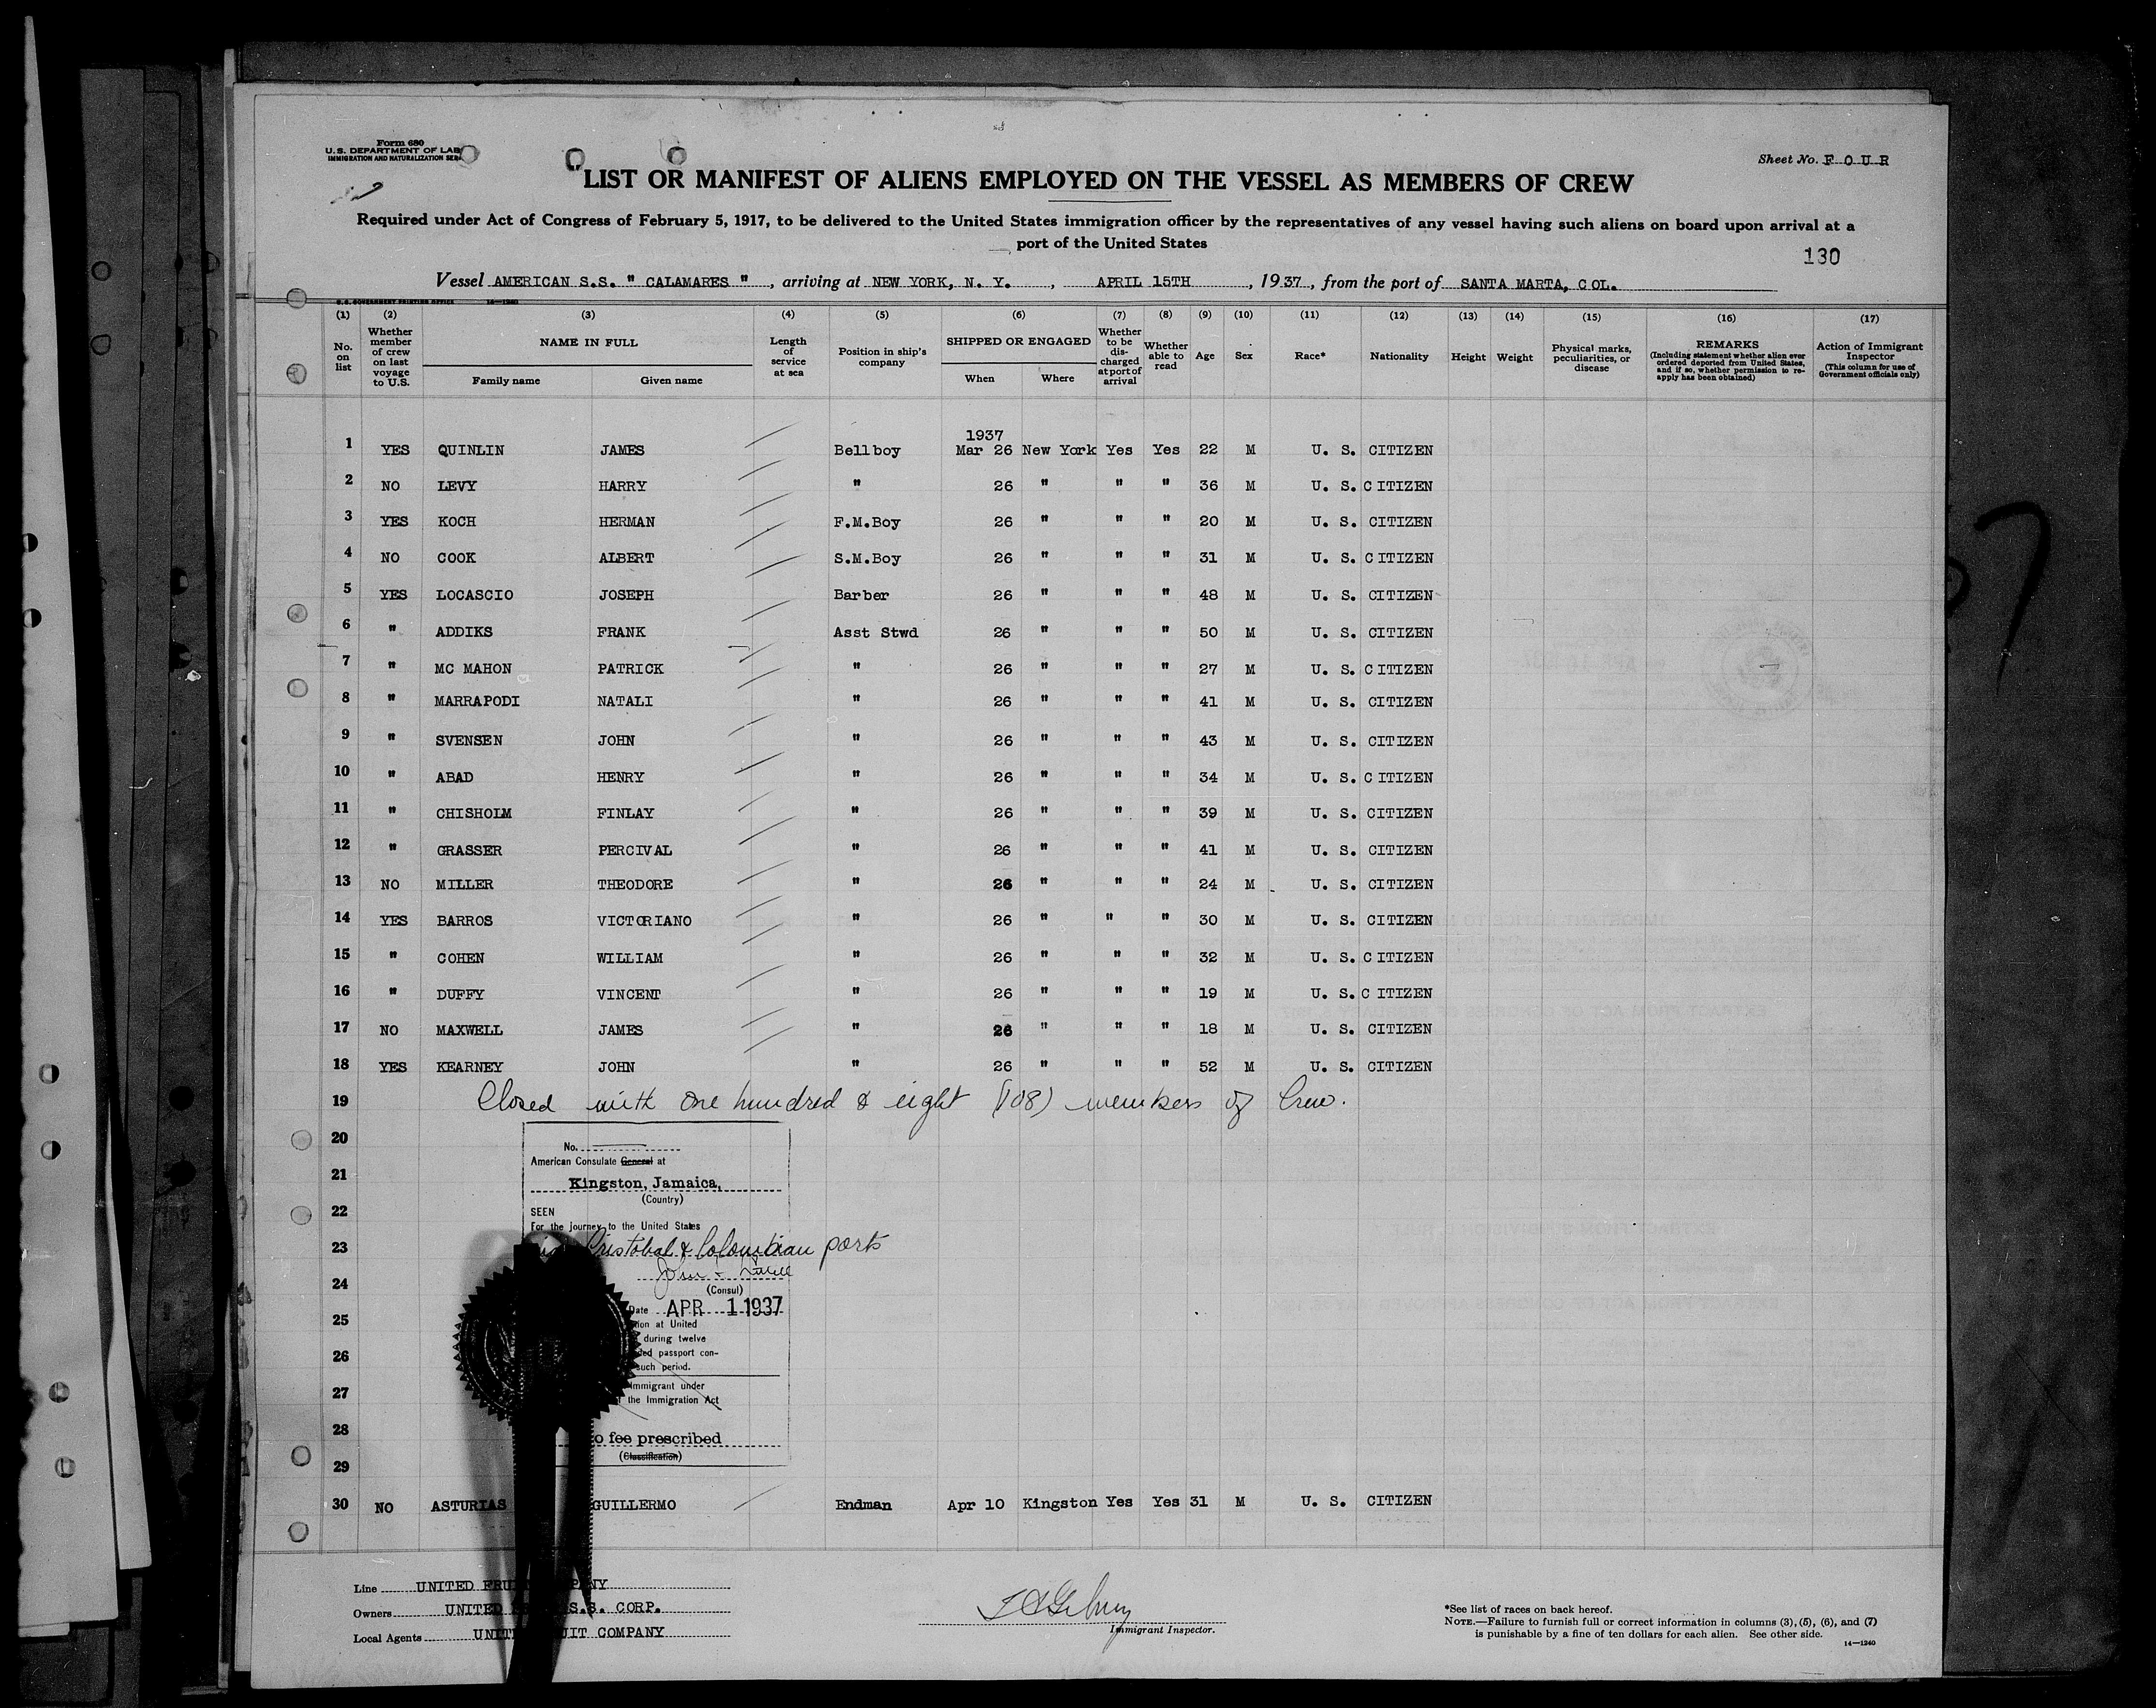 Form 680
U.S. DEPARTMENT OF LAB
IMMIGRATION AND NATURALIZATION SER
Sheet No. FOUR
LIST OR MANIFEST OF ALIENS EMPLOYED ON THE VESSEL AS MEMBERS OF CREW
Required under Act of Congress of February 5, 1917, to be delivered to the United States immigration officer by the representatives of any vessel having such aliens on board upon arrival at a
port of the United States
130
Vessel AMERICAN S.S. " CALAMARES " , arriving at NEW YORK, N. Y. , APRIL 15TH , 1937 , from the port of SANTA MARTA, COL.
U.S. GOVERNMENT PRINTING OFFICE 14—1240
(1) No. on list
(2) Whether member of crew on last voyage to U.S.
(3) NAME IN FULL Family name Given name
(4) Length of service at sea
(5) Position in ship's company
(6) SHIPPED OR ENGAGED When Where
(7) Whether to be dis-charged at port of arrival
(8) Whether able to read
(9) Age
(10) Sex
(11) Race*
(12) Nationality
(13) Height
(14) Weight
(15) Physical marks, peculiarities, or disease
(16) REMARKS (Including statement whether alien ever ordered deported from United States, and if so, whether permission to re-apply has been obtained)
(17) Action of Immigrant Inspector (This column for use of Government officials only)
1937
1 YES QUINLIN JAMES Bellboy Mar 26 New York Yes Yes 22 M U. S. CITIZEN
2 NO LEVY HARRY " 26 " " " 36 M U. S. CITIZEN
3 YES KOCH HERMAN F.M.Boy 26 " " " 20 M U. S. CITIZEN
4 NO COOK ALBERT S.M.Boy 26 " " " 31 M U. S. CITIZEN
5 YES LOCASCIO JOSEPH Barber 26 " " " 48 M U. S. CITIZEN
6 " ADDIKS FRANK Asst Stwd 26 " " " 50 M U. S. CITIZEN
7 " MC MAHON PATRICK " 26 " " " 27 M U. S. CITIZEN
8 " MARRAPODI NATALI " 26 " " " 41 M U. S. CITIZEN
9 " SVENSEN JOHN " 26 " " " 43 M U. S. CITIZEN
10 " ABAD HENRY " 26 " " " 34 M U. S. CITIZEN
11 " CHISHOLM FINLAY " 26 " " " 39 M U. S. CITIZEN
12 " GRASSER PERCIVAL " 26 " " " 41 M U. S. CITIZEN
13 NO MILLER THEODORE " 26 " " " 24 M U. S. CITIZEN
14 YES BARROS VICTORIANO " 26 " " " 30 M U. S. CITIZEN
15 " COHEN WILLIAM " 26 " " " 32 M U. S. CITIZEN
16 " DUFFY VINCENT " 26 " " " 19 M U. S. CITIZEN
17 NO MAXWELL JAMES " 26 " " " 18 M U. S. CITIZEN
18 YES KEARNEY JOHN " 26 " " " 52 M U. S. CITIZEN
19 Closed with one hundred & eight (108) members of Crew.
20
No.
American Consulate General at
21
Kingston, Jamaica,
(Country)
22
SEEN
For the journey to the United States
23
Cristobal & Colombian ports
24
John
(Consul)
Date APR 1 1937
25
ion at United
during twelve
26
ded passport con-
such period.
27
immigrant under
the Immigration Act
28
o fee prescribed
(Classification)
29
30 NO ASTURIAS GUILLERMO Endman Apr 10 Kingston Yes Yes 31 M U. S. CITIZEN
Line UNITED FRU PANY
Owners UNITED S.S. CORP.
Local Agents UNIT UIT COMPANY
Immigrant Inspector.
*See list of races on back hereof.
NOTE.—Failure to furnish full or correct information in columns (3), (5), (6), and (7)
is punishable by a fine of ten dollars for each alien. See other side.
14—1240